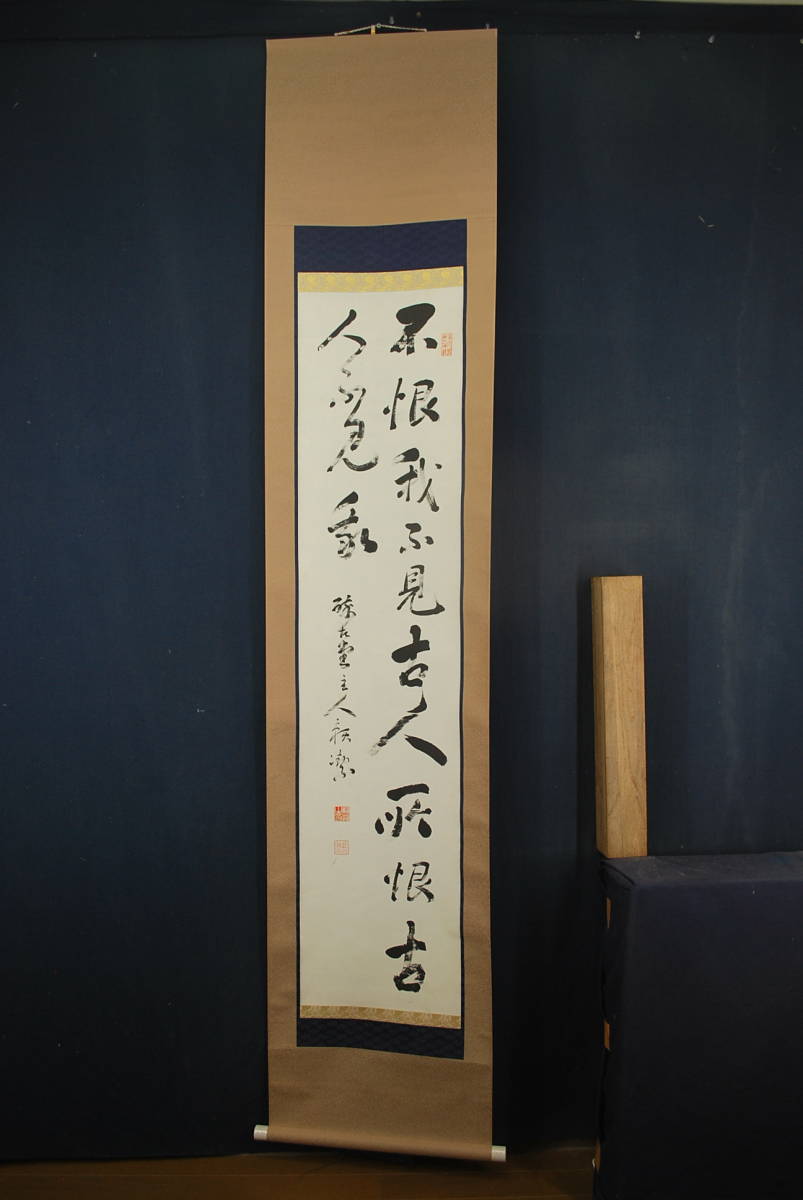 不恨我不見古人所恨古
人不見我
主人